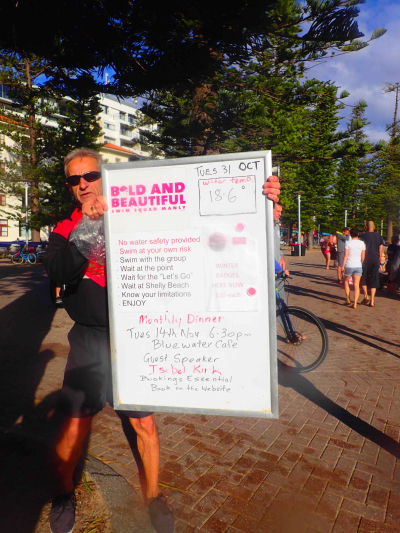 TUES 31 OCT
BOLD AND
BEAUTIFUL
SWIM SQUAD MANLY
Water Temp
18.6°
No water safety provided
Swim at your own risk
Swim with the group
Wait at the point
Wait for the "Let's Go"
Wait at Shelly Beach
Know your limitations
ENJOY
WINTER
HERE NOW
Monthly Dinner
Tues 14th Nov 6.30pm
Bluewater Cafe
Guest Speaker
Isobel Kirk
Bookings Essential
Book on the Website